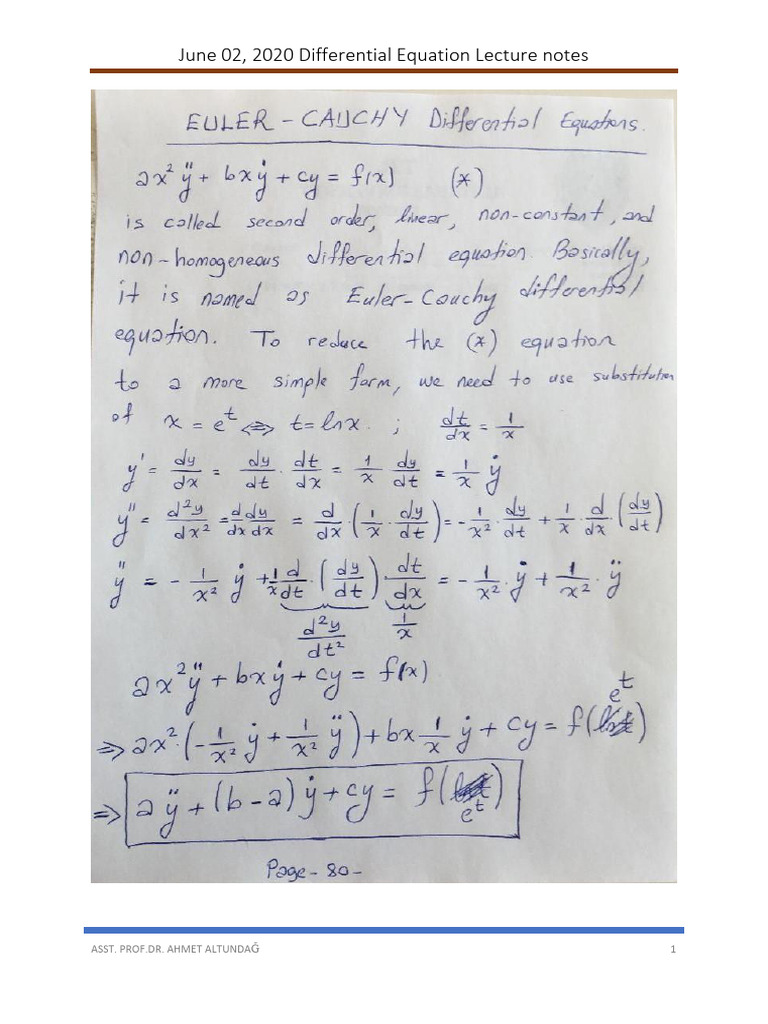 June 02, 2020 Differential Equation Lecture notes
EULER - CAUCHY Differential Equations.
ax² ÿ + bxẏ + cy = f(x) (*)
is called second order, linear, non-constant, and
non-homogeneous differential equation. Basically,
it is named as Euler-Cauchy differential
equation. To reduce the (*) equation
to a more simple form, we need to use substitution
of x = e^t <=> t = lnx. ; dt/dx = 1/x
y' = dy/dx = dy/dt · dt/dx = 1/x dy/dt = 1/x ẏ
y'' = d²y/dx² = d/dx dy/dx = d/dx · (1/x · dy/dt) = -1/x² · dy/dt + 1/x · d/dx · (dy/dt)
ÿ = - 1/x² ẏ + 1/x d/dt · (dy/dt) · dt/dx = - 1/x² · ẏ + 1/x² · ÿ
d²y/dt² 1/x
ax² ÿ + bxẏ + cy = f(x)
e^t
=> ax² · (-1/x² ẏ + 1/x² ÿ) + bx 1/x ẏ + cy = f( )
=> aÿ + (b - a) ẏ + cy = f( )
e^t
Page - 80 -
ASST. PROF.DR. AHMET ALTUNDAĞ 1